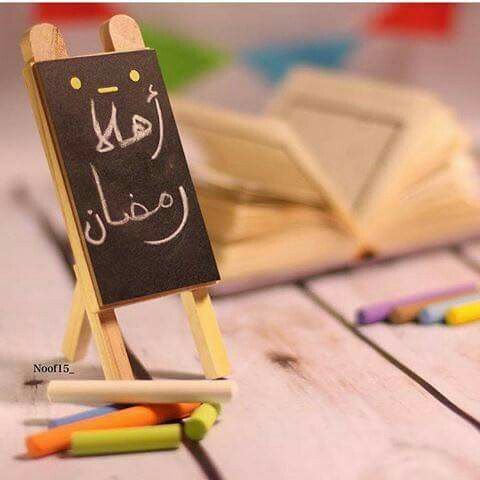 أهلا
رمضان
Noof15_